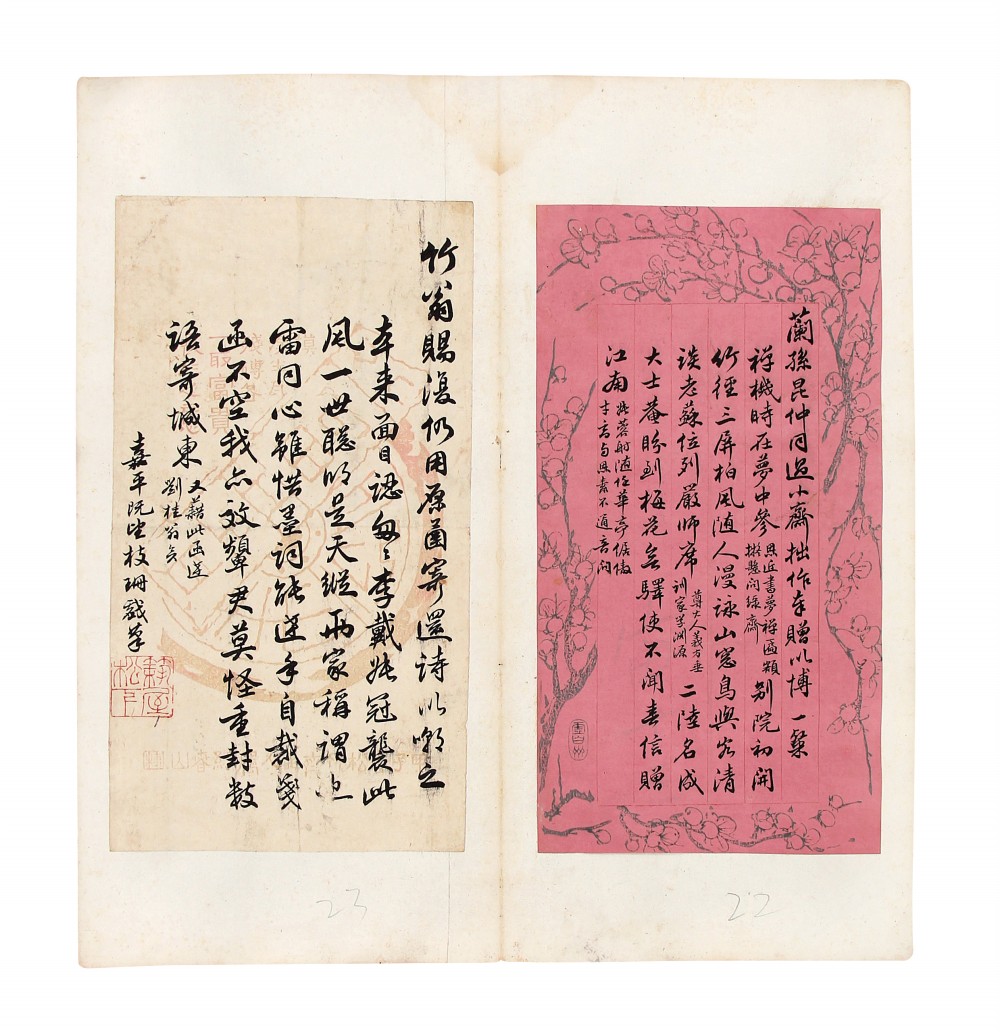 蘭孫昆仲同過小齋拙作奉贈以博一粲
禪機時在夢中參
思廷書夢禪匾額
擬懸問綠齋
別院初開
竹徑三屏柏風隨人漫詠山窓鳥與客清
談老蘇位列嚴師席
尊大人義方垂
訓家學淵源
二陸名咸
大士菴盼到梅花無驛使不聞春信贈
江南
此蓉舫隨任華亭
音問
竹翁賜復仍用原圅寄還詩以嘲之
本來面目認匆匆李戴張冠襲此
風一世聰明是天縱兩家稱謂忽
雷同心雖惜墨詞能達手自裁箋
函不空我亦效顰君莫怪重封數
語寄城東
又藉此函達
劉桂翁矣
嘉平阮望枝珊戲筆
松下
22
23